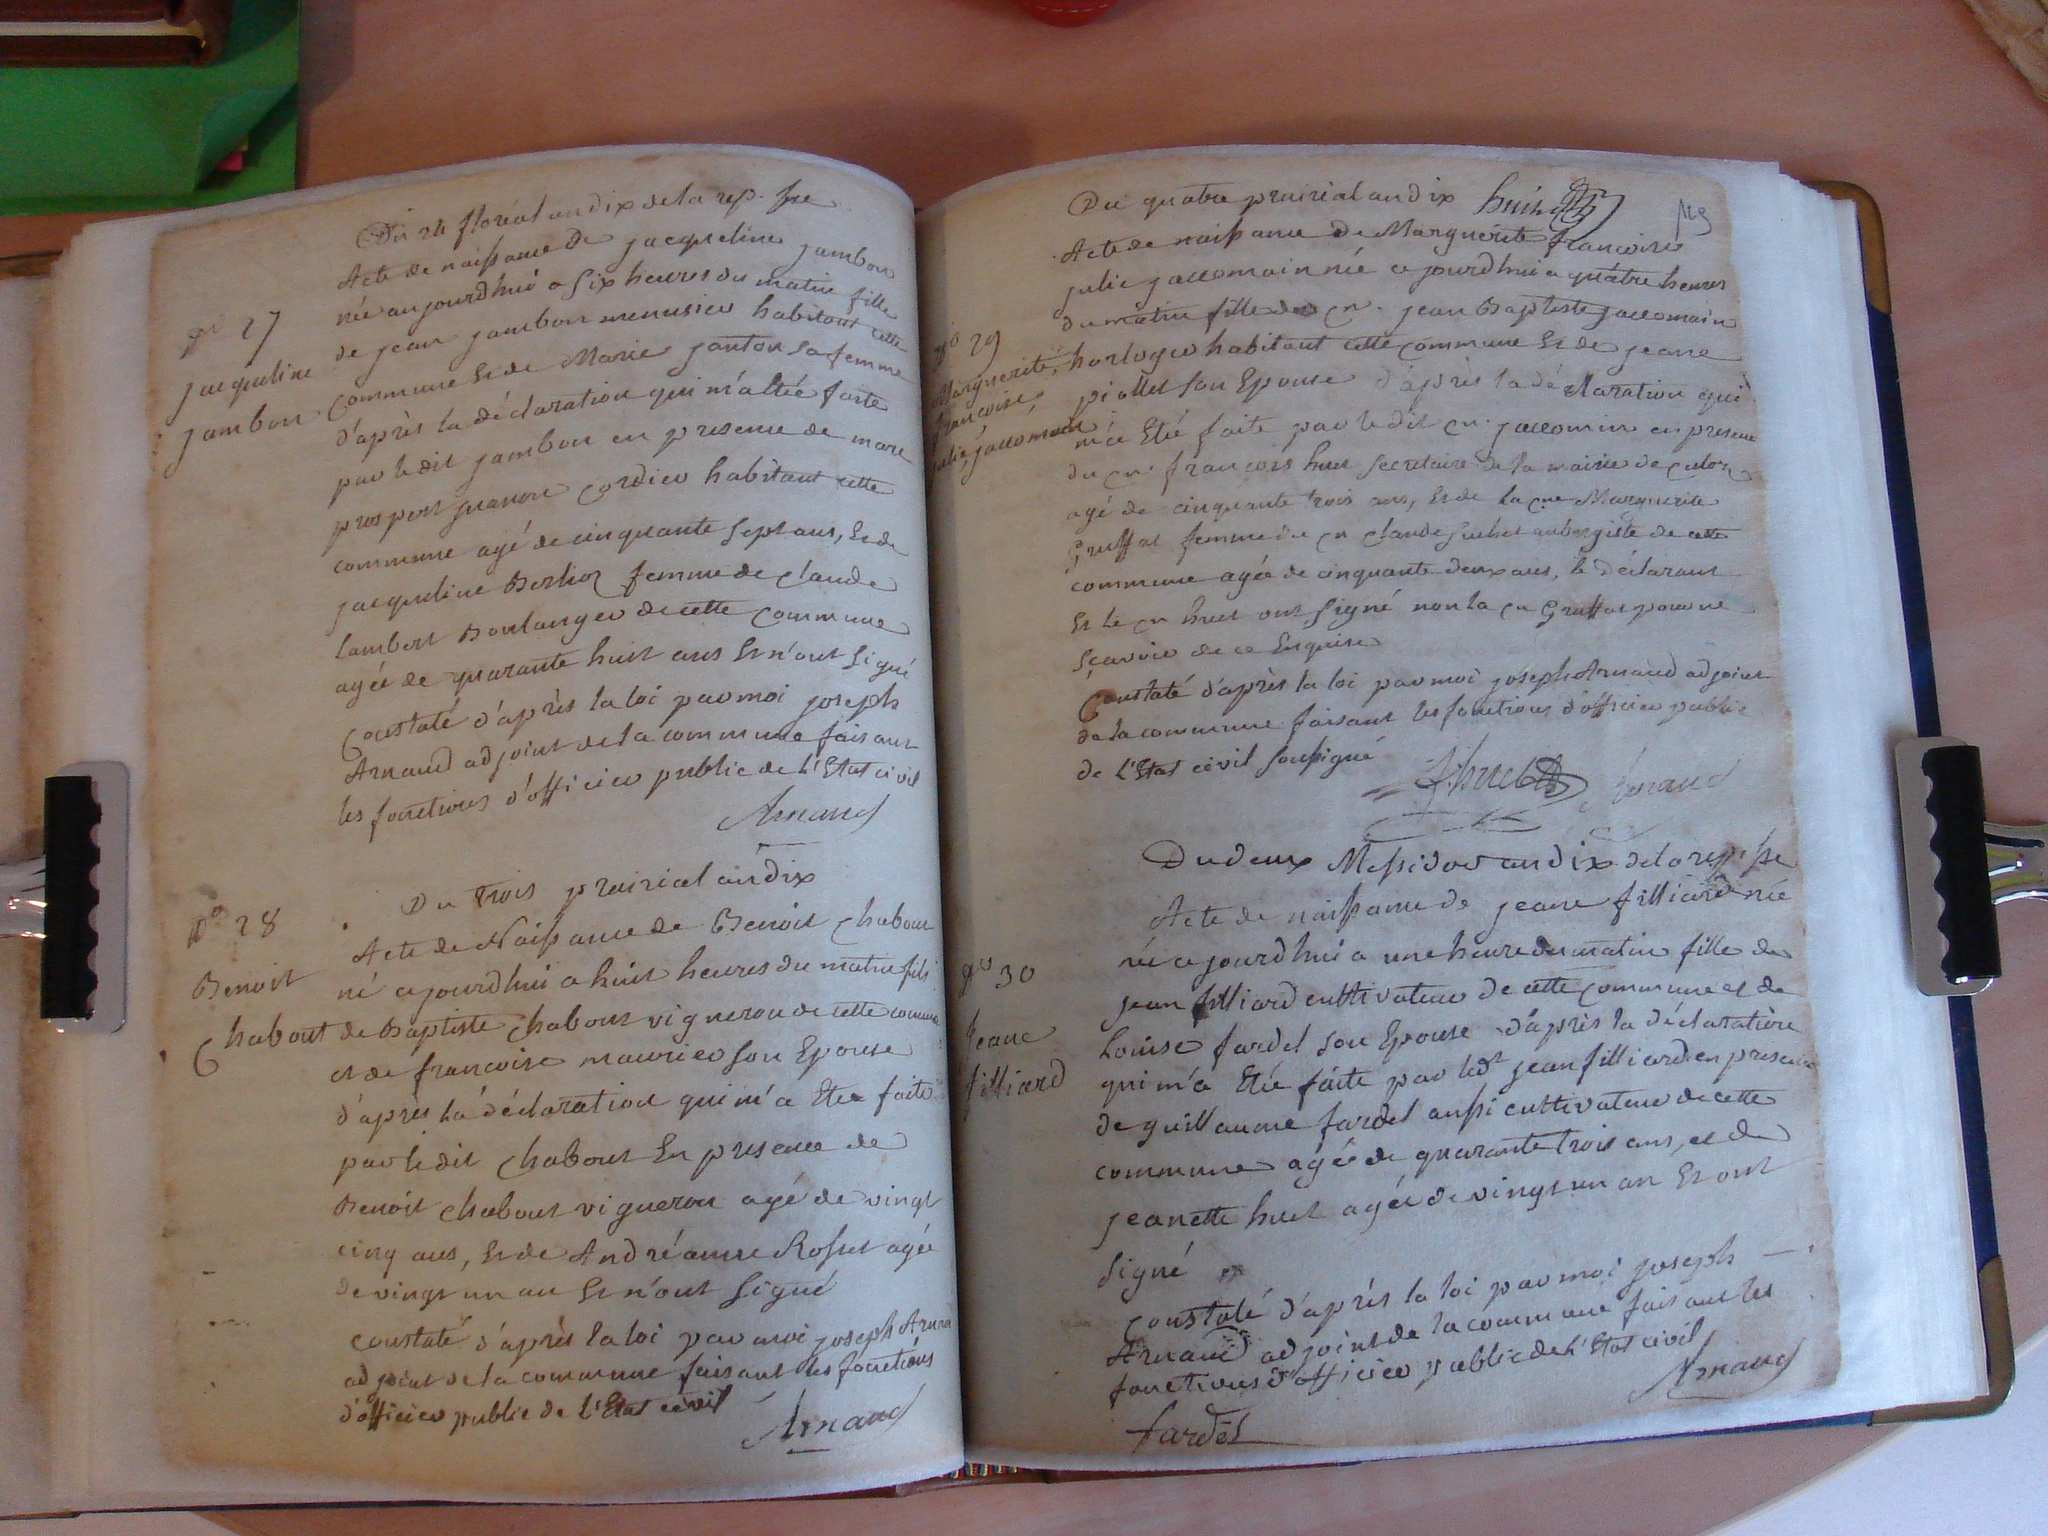 Du 24 floréal an dix de la rep. fse
Acte de naissance de jacqueline jambon
née aujourdhui a six heures du matin fille
de jean jambon menusier habitant cette
commune et de Marie janton sa femme
d'après la déclaration qui m'a été faite
par le dit jambon en presence de marc
prospert cordier habitant cette
commune agé de cinquante sept ans, et de
jacqueline Berlioz femme de claude
Lambert Boulanger de cette commune
agée de quarante huit ans et n'ont signé
Constaté d'après la loi par moi joseph
Arnaud adjoint de la commune faisant
les fonctions d'officier public de l'Etat civil
Arnaud
No 27
jacqueline
jambon
Du trois prairial an dix
Acte de Naissance de Benoit Chabout
né ajourdhui a huit heures du matin fils
de Baptiste Chabout vigneron de cette commune
et de francoise maurier son Epouse
d'après la déclaration qui m'a Eté faite
par le dit Chabout En presence de
Benoit Chabout vigneron agé de vingt
cinq ans, et de André anne Rosset agée
de vingt un an et n'ont signé
constaté d'après la loi par moi joseph Arnaud
adjoint de la commune faisant les fonctions
d'officier public de l'Etat civil
Arnaud
No 28
Benoit
Chabout
Du quatre prairial an dix
119
Acte de naissance de Marguerite francoise
julie jaccomain née ajourdhui a quatre heures
du matin fille du cn. jean Baptiste jaccomain
horloger habitant cette commune et de jeane
piollet son Epouse d'après la déclaration qui
m'a Eté faite par le dit cn. jaccomin en presence
du cn. francois huet secretaire de la mairie de
agé de cinquante trois ans, et de la cne Marguerite
Gruffat femme du cn claude aubergiste de cette
commune agée de cinquante deux ans, le déclarant
et le cn huet ont signé non la cn Gruffat pour ne
sçavoir de ce Enquise
Constaté d'après la loi par moi joseph Arnaud adjoint
de la commune faisant les fonctions d'officier public
de l'Etat civil soussigné
f. huet Arnaud
No 29
Marguerite,
françoise,
julie, jaccomain
Du deux Messidor an dix de la rep. fse
Acte de naissance de jeane filliard née
née ajourdhui a une heure du matin fille de
jean filliard cultivateur de cette commune et de
Louise fardel son Epouse d'après la déclaration
qui m'a Eté faite par ledt jean filliard en presence
de guillaume fardel aussi cultivateur de cette
commune agé de quarante trois ans, et de
jeanette huet agée de vingt un an Et ont
signé
Constaté d'après la loi par moi joseph
Arnaud adjoint de la commune faisant les
fonctions d'officier public de l'Etat civil
Arnaud
fardel
No 30
Jeane
filliard